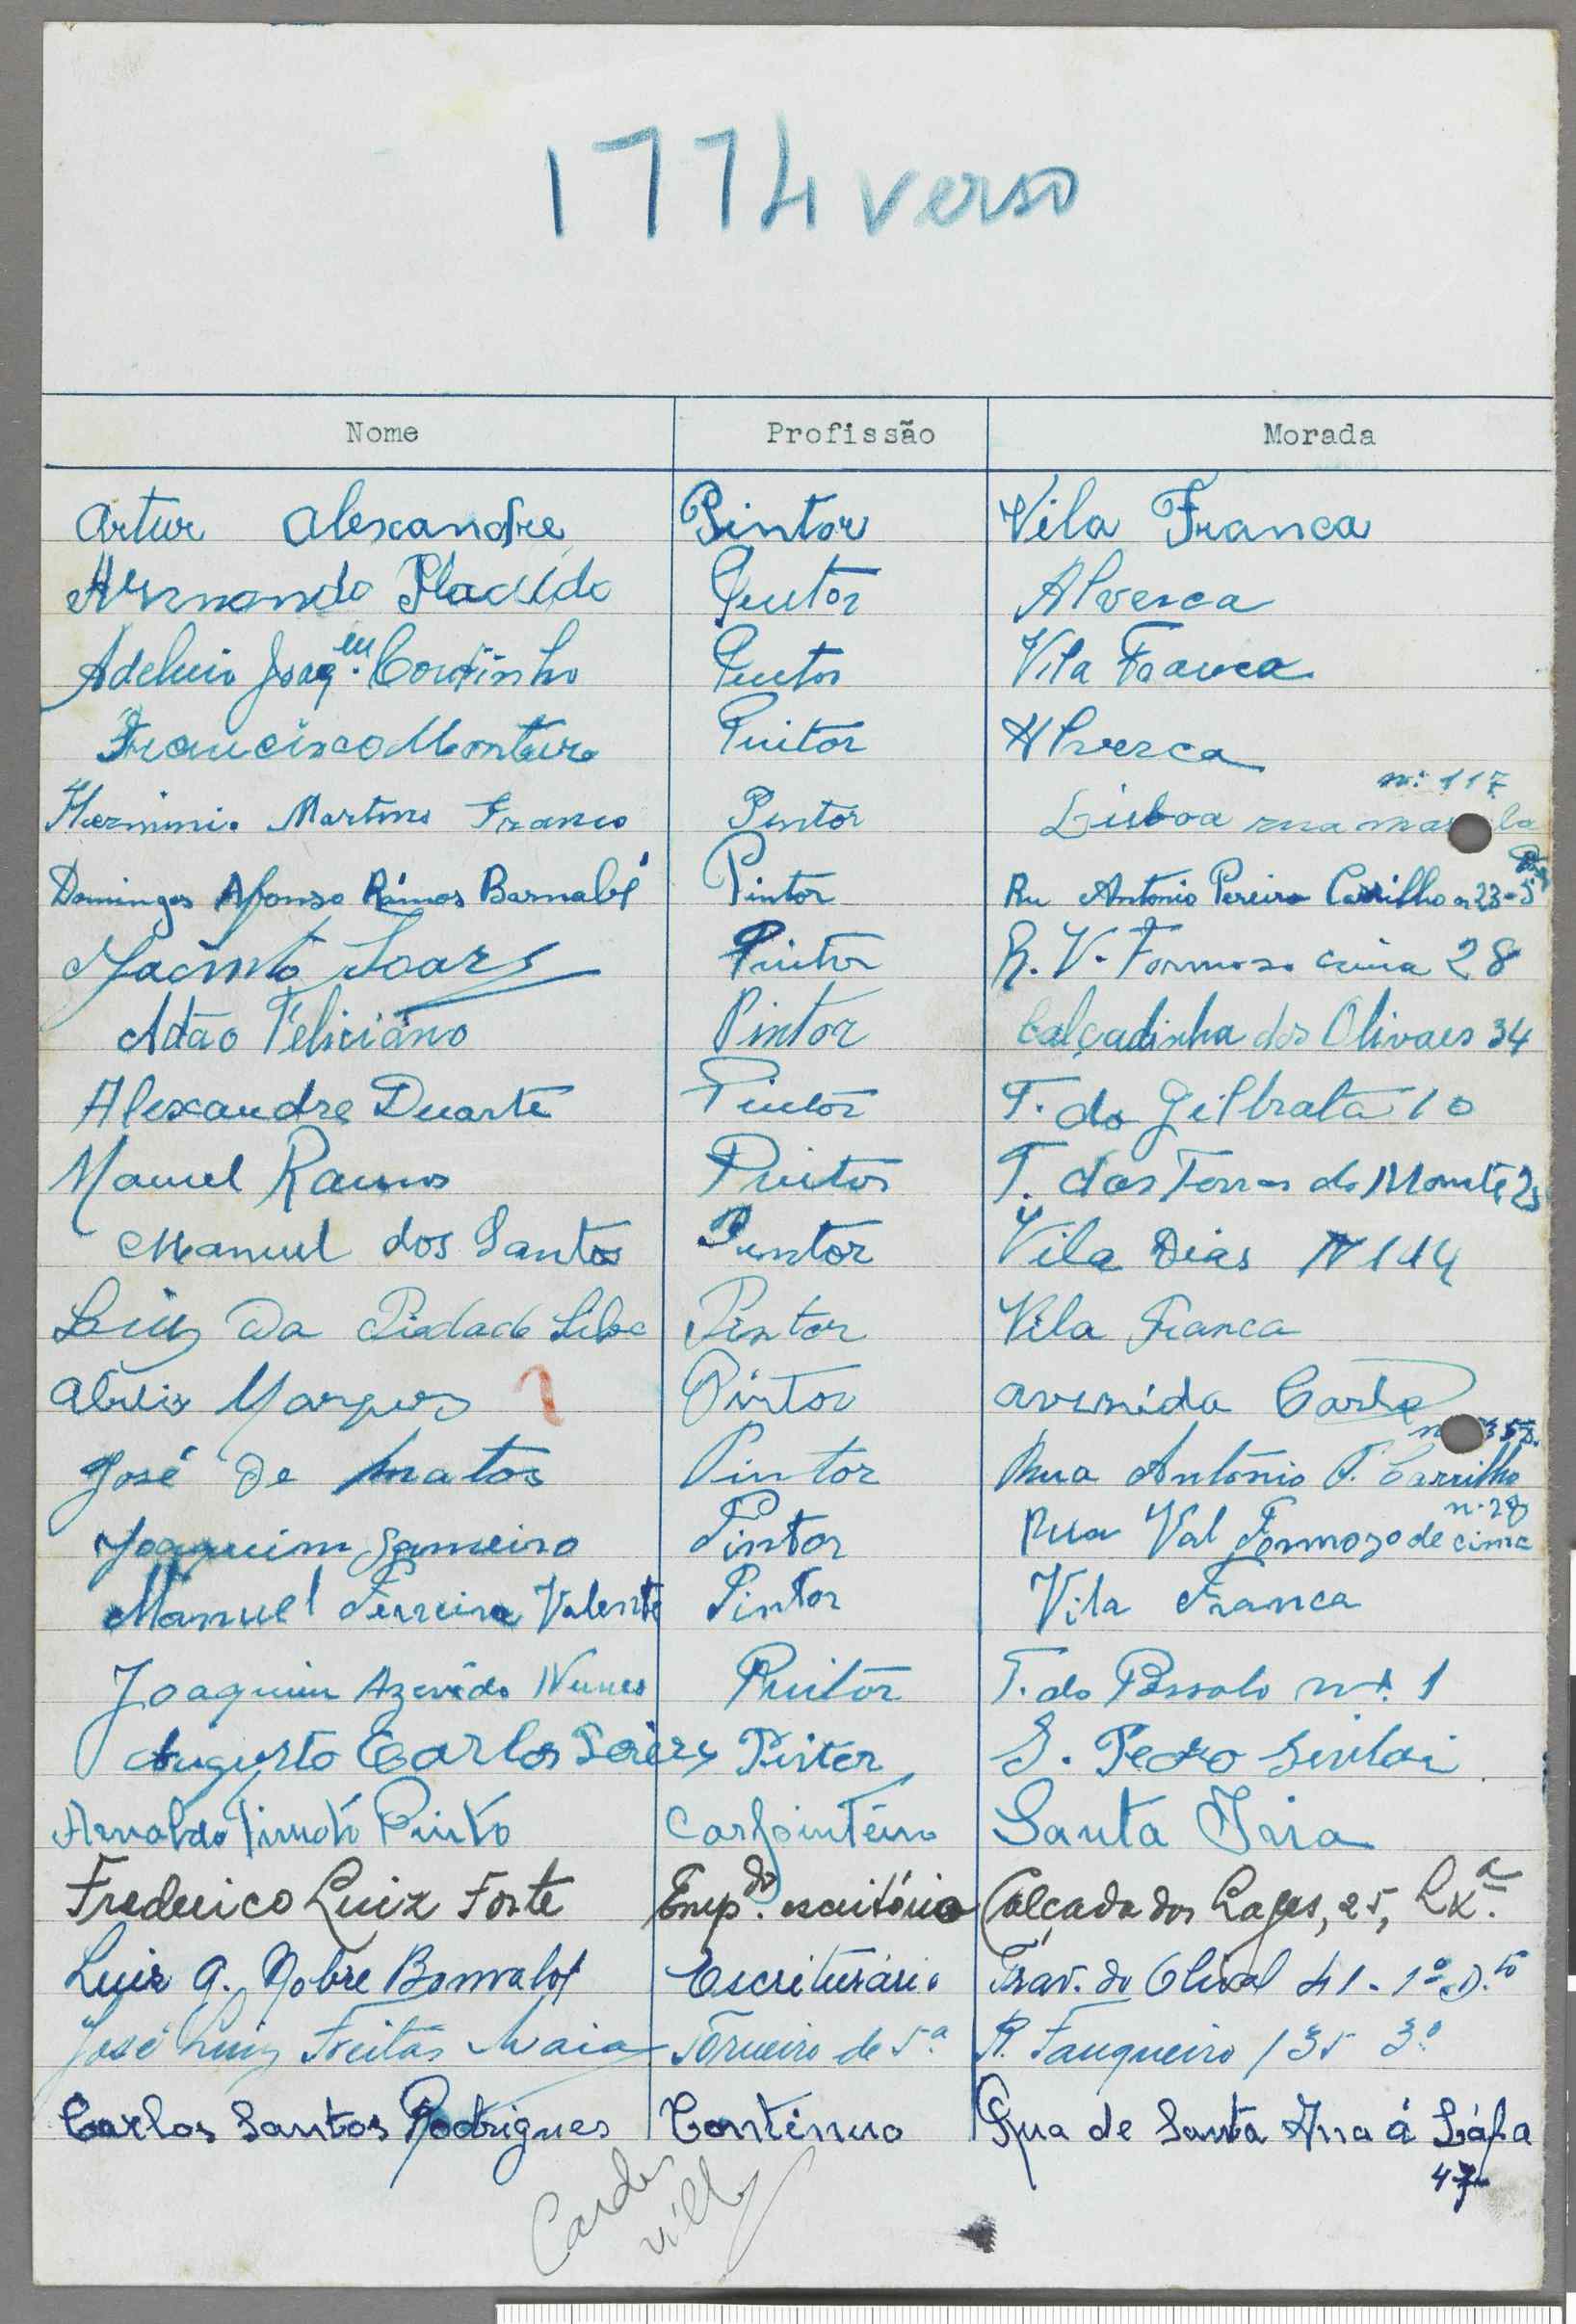 1774 verso
Nome Profissão Morada
Artur Alexandre Pintor Vila Franca
Armando Placido Pintor Alverca
Adelino Joaq.m Coutinho Pintor Vila Franca
Francisco Monteiro Pintor Alverca
nº 117
Herminio Martins Franco Pintor Lisboa rua
Domingos Afonso Ramos Barnabé Pintor Ru Antonio Pereira Carrilho n 23-5
Jacinto Soares Pintor R. V. Formoso cima 28
Adão Feliciano Pintor Calçadinha dos Olivaes 34
Alexandre Duarte Pintor T. do Gilbrata 10
Manuel Ramos Pintor T. das Terras do Monte 25
Manuel dos Santos Pintor Vila Dias N 144
Luiz da Piedade Silva Pintor Vila Franca
Marques Pintor avenida
José de Matos Pintor Rua António P. Carrilho
n. 28
Joaquim Gameiro Pintor Rua Val Formozo de cima
Manuel Ferreira Valente Pintor Vila Franca
Joaquim Azevêdo Nunes Pintor T. do Possolo nº 1
Augusto Carlos Pintor S. Pedro
Arnaldo Pinto Carpinteiro Santa Iria
Frederico Luiz Forte Emp.do escritório Calçada dos Lages, 25, Lx.a
Luiz A. Nobre Escriturário Trav. do Olival 41-1º D.to
José Luiz Freitas Maia Torneiro de 5.ª R. Fanqueiro 135 3º
Carlos Santos Rodrigues Continuo Rua de Santa Ana á Lápa
47